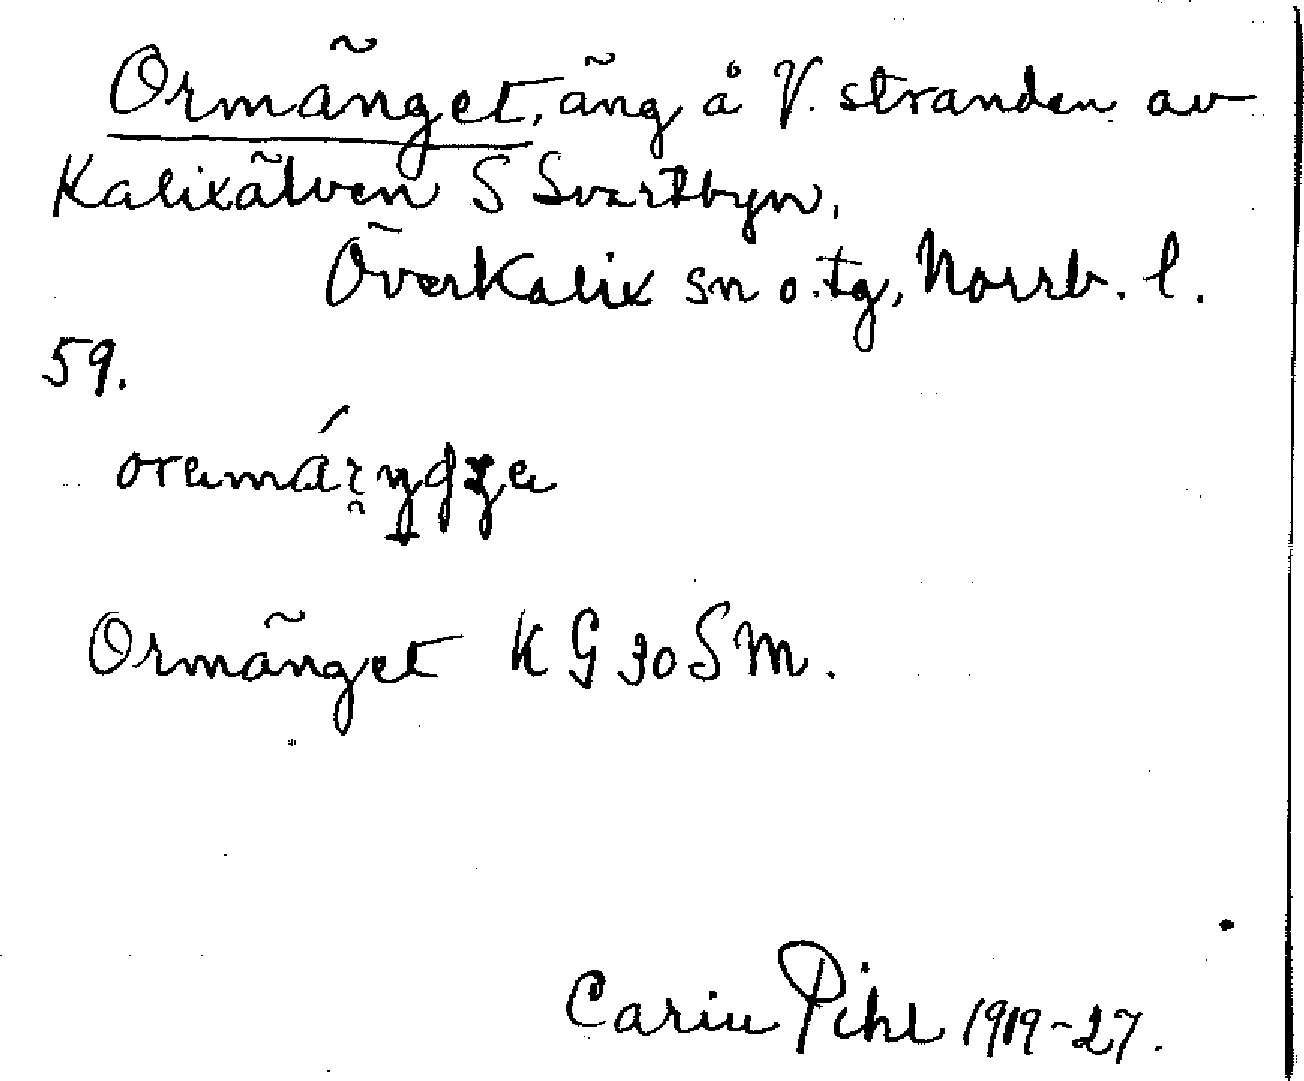 Ormänget, äng å V. stranden av
Kalixälven S Svartbyn,
Överkalix sn o. tg, Norrb. l.
59.
Ormänget K G 30 S M.
Carin Pihl 1919-27.